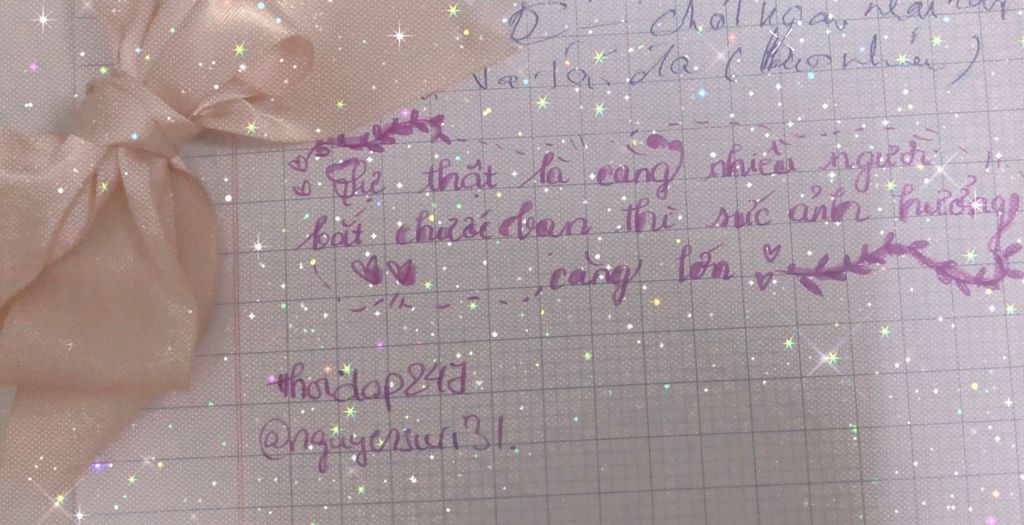 chất
và đa (
Sự thật là càng nhiều người
bắt chước bạn thì sức ảnh hưởng
càng lớn
#hoidap247
@nguyensuri31.